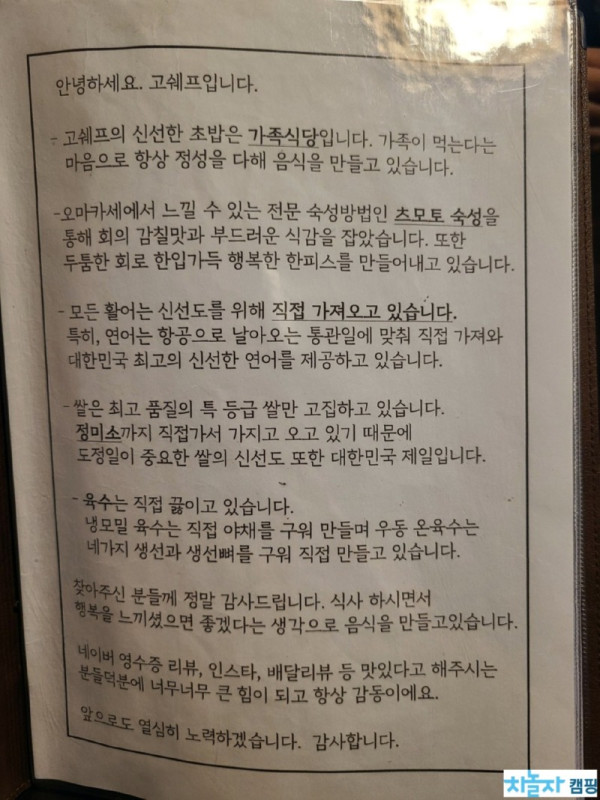 안녕하세요. 고쉐프입니다.
- 고쉐프의 신선한 초밥은 가족식당입니다. 가족이 먹는다는
마음으로 항상 정성을 다해 음식을 만들고 있습니다.
-오마카세에서 느낄 수 있는 전문 숙성방법인 츠모토 숙성을
통해 회의 감칠맛과 부드러운 식감을 잡았습니다. 또한
두툼한 회로 한입가득 행복한 한피스를 만들어내고 있습니다.
- 모든 활어는 신선도를 위해 직접 가져오고 있습니다.
특히, 연어는 항공으로 날아오는 통관일에 맞춰 직접 가져와
대한민국 최고의 신선한 연어를 제공하고 있습니다.
- 쌀은 최고 품질의 특 등급 쌀만 고집하고 있습니다.
정미소까지 직접가서 가지고 오고 있기 때문에
도정일이 중요한 쌀의 신선도 또한 대한민국 제일입니다.
- 육수는 직접 끓이고 있습니다.
냉모밀 육수는 직접 야채를 구워 만들며 우동 온육수는
네가지 생선과 생선뼈를 구워 직접 만들고 있습니다.
찾아주신 분들께 정말 감사드립니다. 식사 하시면서
행복을 느끼셨으면 좋겠다는 생각으로 음식을 만들고있습니다.
네이버 영수증 리뷰, 인스타, 배달리뷰 등 맛있다고 해주시는
분들덕분에 너무너무 큰 힘이 되고 항상 감동이에요.
앞으로도 열심히 노력하겠습니다. 감사합니다.
차놀자 캠핑